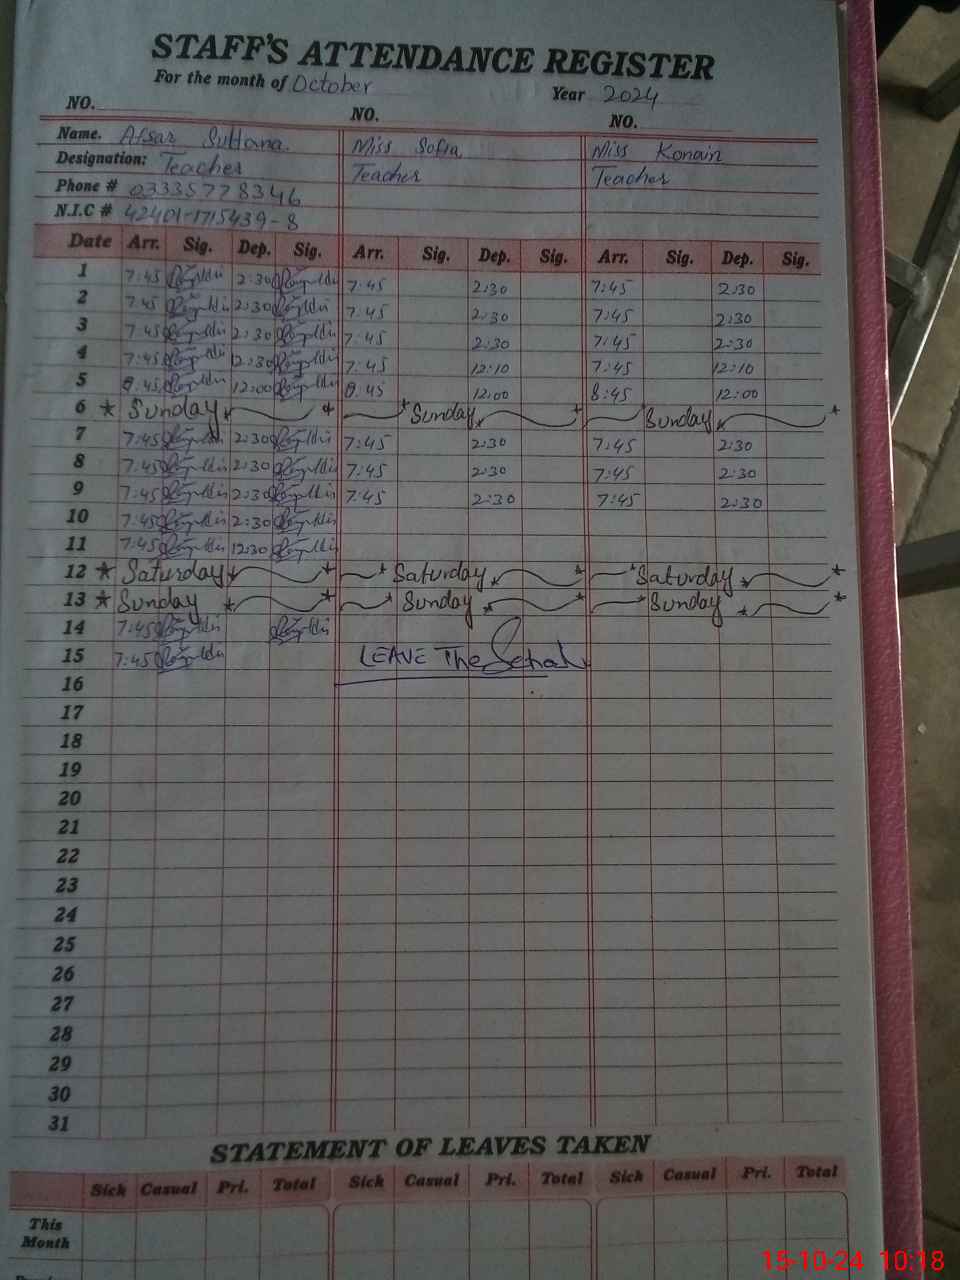 STAFF'S ATTENDANCE REGISTER
For the month of October Year 2024
NO. NO. NO.
Name. Afsar Sultana Miss Sofia Miss Konain
Designation: Teacher Teacher Teacher
Phone # 03335778346
N.I.C # 42401-1715439-8
Date Arr. Sig. Dep. Sig. Arr. Sig. Dep. Sig. Arr. Sig. Dep. Sig.
1 7:45 2:30 7:45 2:30 7:45 2:30
2 7:45 2:30 7:45 2:30 7:45 2:30
3 7:45 2:30 7:45 2:30 7:45 2:30
4 7:45 12:30 7:45 12:10 7:45 12:10
5 8:45 12:00 8:45 12:00 8:45 12:00
6 * Sunday Sunday Sunday
7 7:45 2:30 7:45 2:30 7:45 2:30
8 7:45 2:30 7:45 2:30 7:45 2:30
9 7:45 2:30 7:45 2:30 7:45 2:30
10 7:45 2:30
11 7:45 12:30
12 * Saturday Saturday Saturday
13 * Sunday Sunday Sunday
14 7:45
15 7:45 LEAVE The
16
17
18
19
20
21
22
23
24
25
26
27
28
29
30
31
STATEMENT OF LEAVES TAKEN
Sick Casual Pri. Total Sick Casual Pri. Total Sick Casual Pri. Total
This
Month
15-10-24 10:18